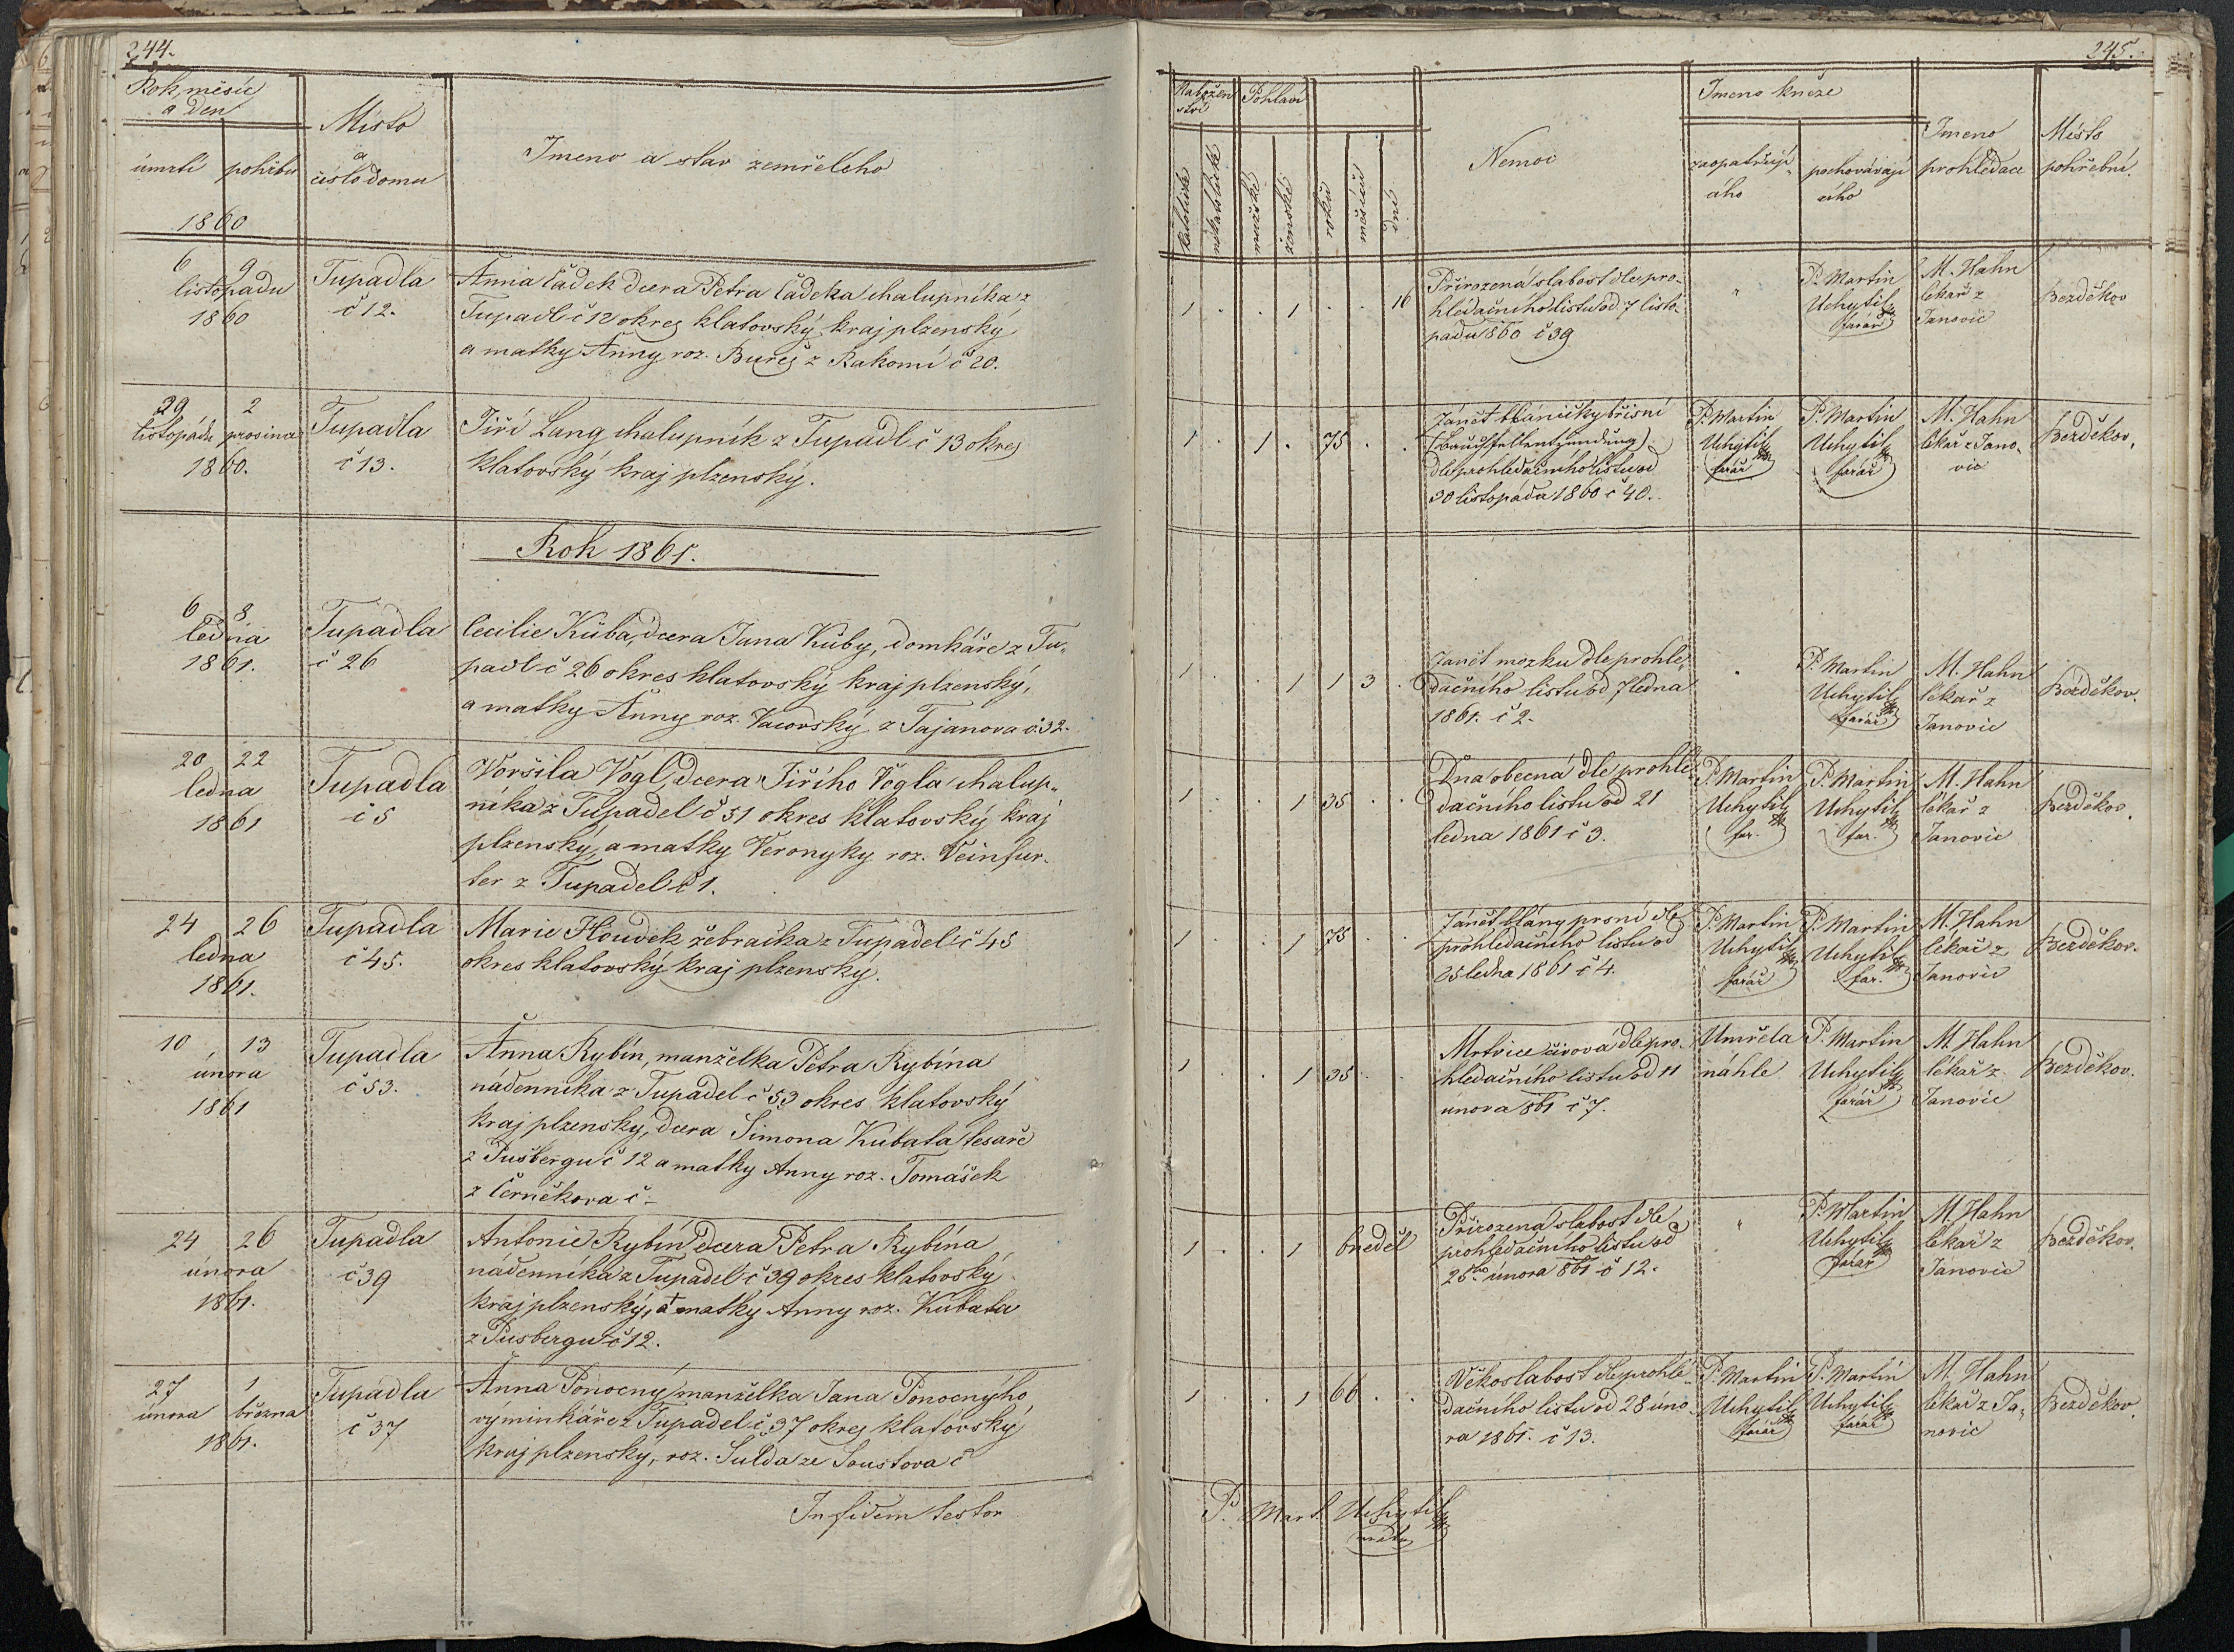 244.
Rok, měsíc
a den
úmrtí pohřbu
1860
Místo
a
číslo domu
Jmeno a stav zemřelého
6 9
listopadu
1860
Tupadla
č 12.
Anna Čadek dcera Petra Čadeka chalupníka z
Tupadl č 12 okres klatovský kraj plzenský
a matky Anny roz. Bureš z Rakomí č 20.
29 2
listopadu prosince
1860.
Tupadla
č 13.
Jiří Lang chalupník z Tupadl č 13 okres
klatovský kraj plzenský.
Rok 1861.
6 8
ledna
1861.
Tupadla
č 26
Cecilie Kůba, dcera Jana Kůby, domkáře z Tu-
padl č 26 okres klatovský kraj plzenský,
a matky Anny roz. Vacovský z Tajanova č. 32.
20 22
ledna
1861
Tupadla
č 5
Voršila Vogl, dcera Jiřího Vogla chalup-
níka z Tupadel č 51 okres klatovský kraj
plzenský, a matky Veronyky roz. Veinfur-
ter z Tupadel č 1.
24 26
ledna
1861.
Tupadla
č 45.
Marie Houdek žebračka z Tupadel č 45
okres klatovský kraj plzenský.
10 13
února
1861
Tupadla
č 53.
Anna Rybín, manželka Petra Rybína
nádenníka z Tupadel č 53 okres klatovský
kraj plzenský, dcera Šimona Kubata tesaře
z Pušbergu č 12 a matky Anny roz. Tomášek
z Černěkova č -
24 26
února
1861.
Tupadla
č 39
Antonie Rybín dcera Petra Rybína
nádenníka z Tupadel č 39 okres klatovský
kraj plzenský, a † matky Anny roz. Kubata
z Pusbergu č 12.
27 1
února března
1861.
Tupadla
č 37
Anna Ponocný manželka Jana Ponocnýho
výminkáře z Tupadel č 37 okres klatovský
kraj plzenský, roz. Sulda ze Soustova č
In fidem testor
245.
Nabožen
ství
Pohlaví
katolické
nekatolické
mužské
ženské
roků
měsíců
dní
Nemoc
Jmeno kněze
zaopatřují
cího
pochovávají
cího
Jmeno
prohledače
Místo
pohřební.
1 . . 1 . . 16
Přirozená slabost dle pro-
hledačního listu od 7 listo-
padu 860 č 39
"
P. Martin
Uchytil
farář
M. Hahn
lékař z
Janovic
Bezděkov
1 . 1 . 75 . .
Zánět blaničky břišní
(Bauchfellentzündung)
dle prohledačního listu od
30 listopadu 1860 č 40.
P. Martin
Uchytil
farář
P. Martin
Uchytil
farář
M. Hahn
lékař z Jano-
vic
Bezděkov.
1 . . 1 1 3 .
Zanět mozku dle prohle-
dačního listu od 7 ledna
1861. č 2.
"
P. Martin
Uchytil
farář
M. Hahn
lékař z
Janovic
Bezděkov.
1 . . 1 35 . .
Dna obecná dle prohle-
dačního listu od 21
ledna 1861 č 3.
P. Martin
Uchytil
far.
P. Martin
Uchytil
far.
M. Hahn
lékař z
Janovic
Bezděkov.
1 . . 1 75 . .
Zánět blány prsní dle
prohledačního listu od
25 ledna 1861 č 4.
P. Martin
Uchytil
farář
P. Martin
Uchytil
far.
M. Hahn
lékař z
Janovic
Bezděkov.
1 . . 1 35 . .
Mrtvice čivová dle pro-
hledačního listu od 11
února 861 č 7.
Umřela
náhle
P. Martin
Uchytil
farář
M. Hahn
lékař z
Janovic
Bezděkov.
1 . . 1 6 neděl
Přirozená slabost dle
prohledačního listu od
25ho února 861 č 12.
"
P. Martin
Uchytil
farář
M. Hahn
lékař z
Janovic
Bezděkov.
1 . . 1 66 . .
Věkoslabost dle prohle-
dačního listu od 28 úno-
ra 1861. č 13.
P. Martin
Uchytil
farář
P. Martin
Uchytil
farář
M. Hahn
lékař z Ja-
novic
Bezděkov.
P. Mart. Uchytil